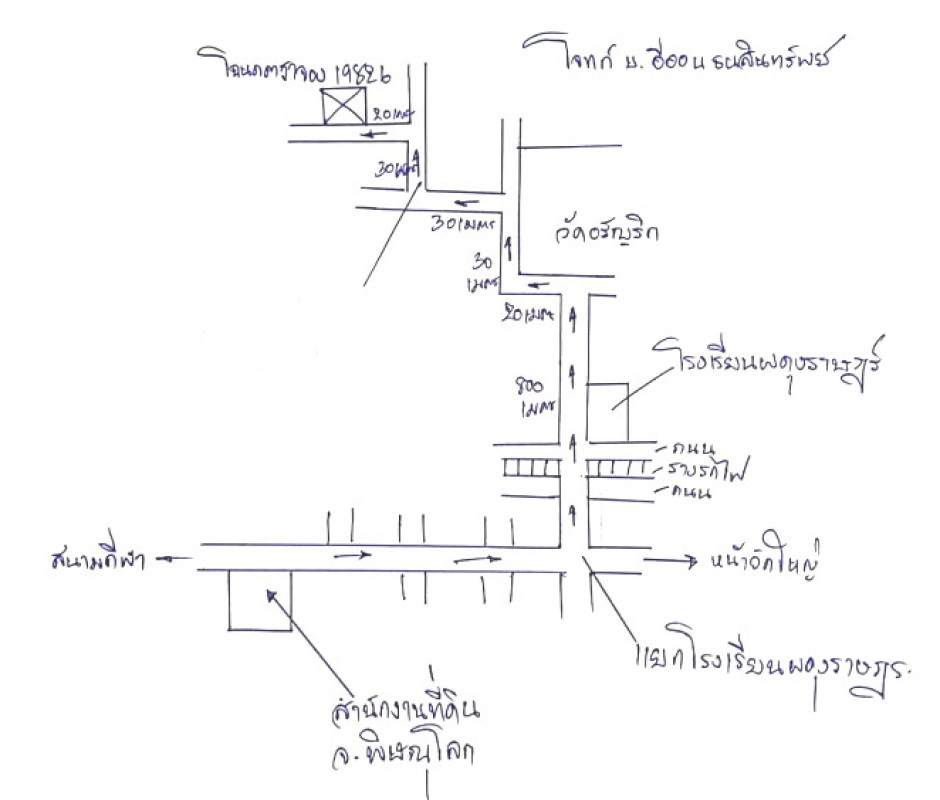 โจทก์ บ. อีออน ธนสินทรัพย์
โฉนดตราจอง 19826
20 เมตร
30 เมตร
30 เมตร
วัดอรัญญิก
30
เมตร
20 เมตร
โรงเรียนผดุงราษฎร์
800
เมตร
ถนน
รางรถไฟ
ถนน
สนามกีฬา
หน้าวัดใหญ่
แยกโรงเรียนผดุงราษฎร์
สำนักงานที่ดิน
จ. พิษณุโลก